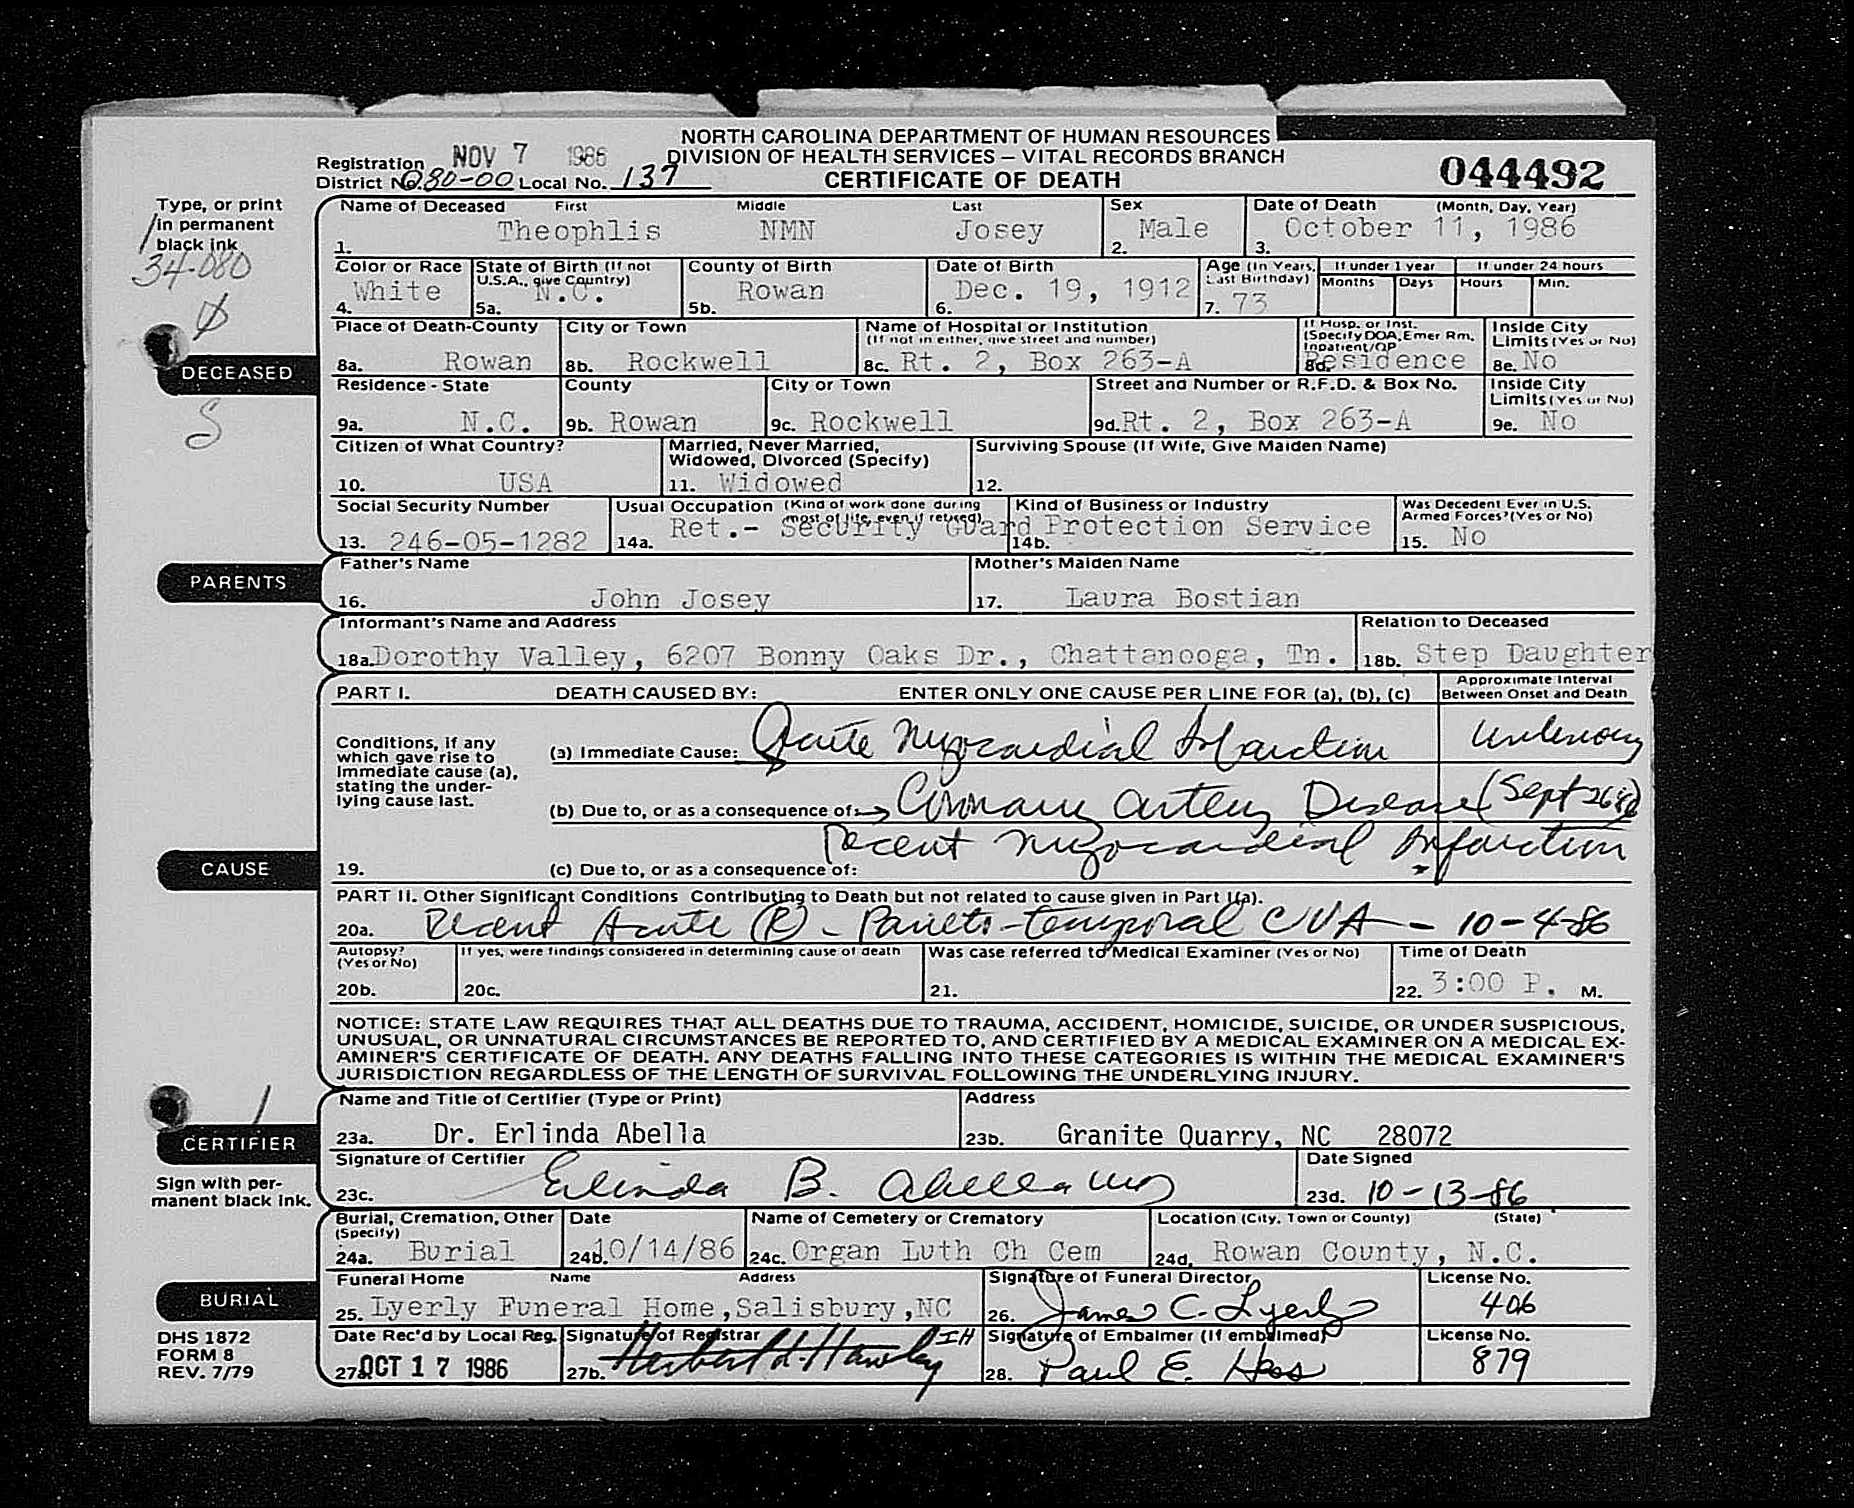 NORTH CAROLINA DEPARTMENT OF HUMAN RESOURCES
DIVISION OF HEALTH SERVICES – VITAL RECORDS BRANCH
CERTIFICATE OF DEATH
NOV 7 1986
Registration District No. 080-00 Local No. 137
044492
Type, or print
in permanent
black ink
34-080
Name of Deceased First Middle Last Sex Date of Death (Month, Day, Year)
1. Theophlis NMN Josey 2. Male 3. October 11, 1986
Color or Race State of Birth (If not U.S.A., give Country) County of Birth Date of Birth Age (In Years, Last Birthday) If under 1 year Months Days If under 24 hours Hours Min.
4. White 5a. N.C. 5b. Rowan 6. Dec. 19, 1912 7. 73
Place of Death-County City or Town Name of Hospital or Institution (If not in either, give street and number) If Hosp. or Inst. (Specify DOA, Emer Rm, Inpatient/OP Inside City Limits (Yes or No)
8a. Rowan 8b. Rockwell 8c. Rt. 2, Box 263-A 8d. Residence 8e. No
DECEASED
Residence - State County City or Town Street and Number or R.F.D. & Box No. Inside City Limits (Yes or No)
9a. N.C. 9b. Rowan 9c. Rockwell 9d. Rt. 2, Box 263-A 9e. No
Citizen of What Country? Married, Never Married, Widowed, Divorced (Specify) Surviving Spouse (If Wife, Give Maiden Name)
10. USA 11. Widowed 12.
Social Security Number Usual Occupation (Kind of work done during most of life, even if retired) Kind of Business or Industry Was Decedent Ever in U.S. Armed Forces? (Yes or No)
13. 246-05-1282 14a. Ret.- Security Guard 14b. Protection Service 15. No
PARENTS
Father's Name Mother's Maiden Name
16. John Josey 17. Laura Bostian
Informant's Name and Address Relation to Deceased
18a. Dorothy Valley, 6207 Bonny Oaks Dr., Chattanooga, Tn. 18b. Step Daughter
PART I. DEATH CAUSED BY: ENTER ONLY ONE CAUSE PER LINE FOR (a), (b), (c) Approximate Interval Between Onset and Death
Conditions, if any
which gave rise to
immediate cause (a),
stating the under-
lying cause last.
(a) Immediate Cause: Acute Myocardial Infarction unknown
(b) Due to, or as a consequence of: Coronary Artery Disease (Sept 26 86)
Recent Myocardial Infarction
CAUSE
19. (c) Due to, or as a consequence of:
PART II. Other Significant Conditions Contributing to Death but not related to cause given in Part I(a).
20a. Recent Acute (R) - Parieto-temporal CVA - 10-4-86
Autopsy? (Yes or No) If yes, were findings considered in determining cause of death Was case referred to Medical Examiner (Yes or No) Time of Death
20b. 20c. 21. 22. 3:00 P. M.
NOTICE: STATE LAW REQUIRES THAT ALL DEATHS DUE TO TRAUMA, ACCIDENT, HOMICIDE, SUICIDE, OR UNDER SUSPICIOUS,
UNUSUAL, OR UNNATURAL CIRCUMSTANCES BE REPORTED TO, AND CERTIFIED BY A MEDICAL EXAMINER ON A MEDICAL EX-
AMINER'S CERTIFICATE OF DEATH. ANY DEATHS FALLING INTO THESE CATEGORIES IS WITHIN THE MEDICAL EXAMINER'S
JURISDICTION REGARDLESS OF THE LENGTH OF SURVIVAL FOLLOWING THE UNDERLYING INJURY.
CERTIFIER
Sign with per-
manent black ink.
Name and Title of Certifier (Type or Print) Address
23a. Dr. Erlinda Abella 23b. Granite Quarry, NC 28072
Signature of Certifier Date Signed
23c. Erlinda B. Abella MD 23d. 10-13-86
Burial, Cremation, Other (Specify) Date Name of Cemetery or Crematory Location (City, Town or County) (State)
24a. Burial 24b. 10/14/86 24c. Organ Luth Ch Cem 24d. Rowan County, N.C.
BURIAL
Funeral Home Name Address Signature of Funeral Director License No.
25. Lyerly Funeral Home, Salisbury, NC 26. James C. Lyerly 406
Date Rec'd by Local Reg. Signature of Registrar Signature of Embalmer (If embalmed) License No.
27a. OCT 17 1986 27b. Herbert L. Hawley IH 28. Paul E. Hess 879
DHS 1872
FORM 8
REV. 7/79